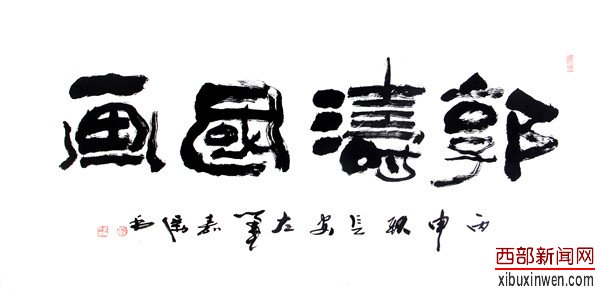 郭濤國画
丙申秋长安左筆嘉书
西部新闻网
xibuxinwen.com